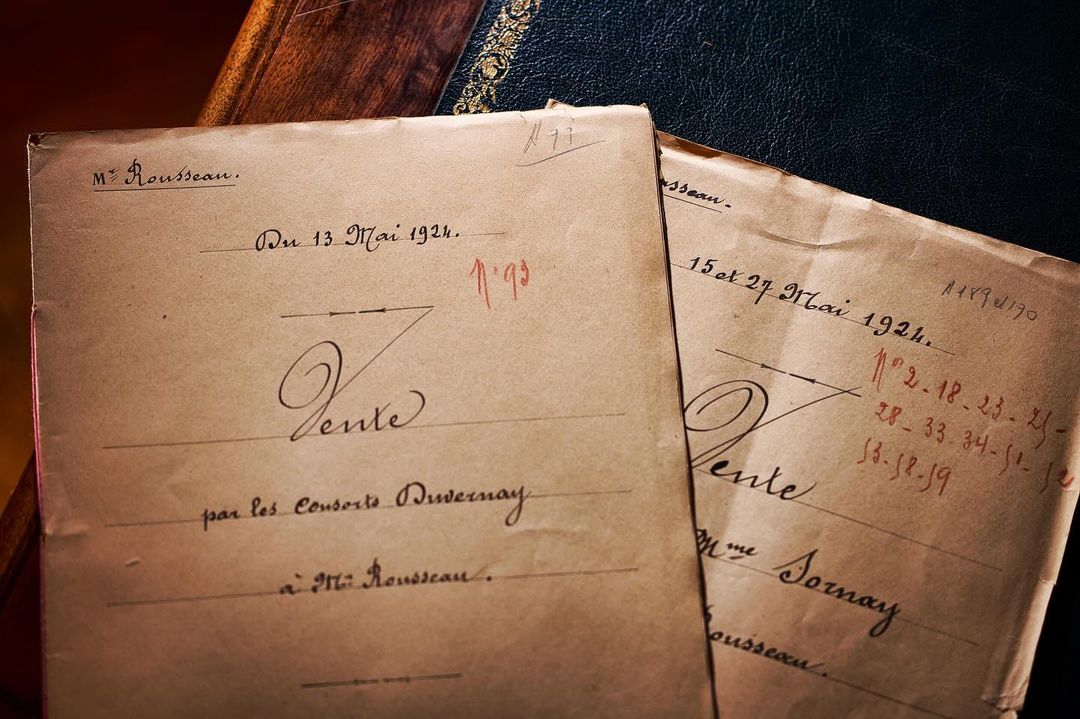 A 93
Mr Rousseau.
Du 13 Mai 1924.
N° 93
Vente
par les Consorts Duvernay
à Mr Rousseau.
usseau.
15 et 27 Mai 1924.
A 189 et 190
Nos 2 - 18 - 23 - 25 -
28 - 33 - 34 - 51 - 52
53 - 58 - 59
Vente
Mme Sornay
Rousseau.